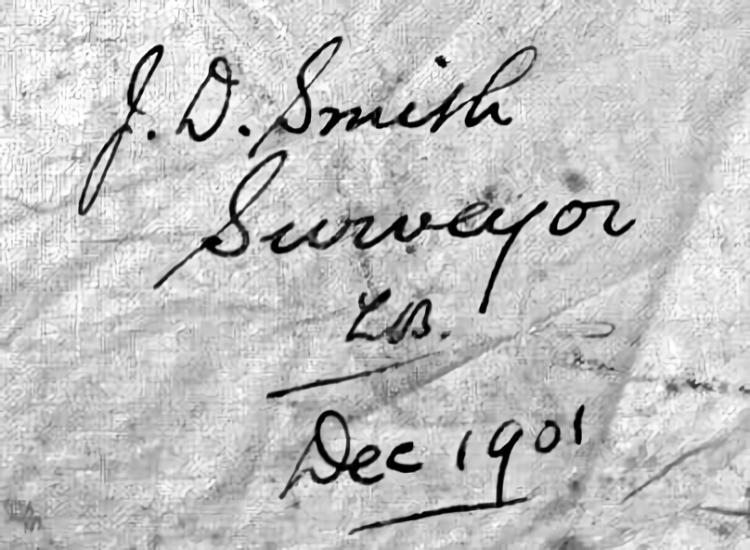 J. D. Smith
Surveyor
L.B.
Dec 1901